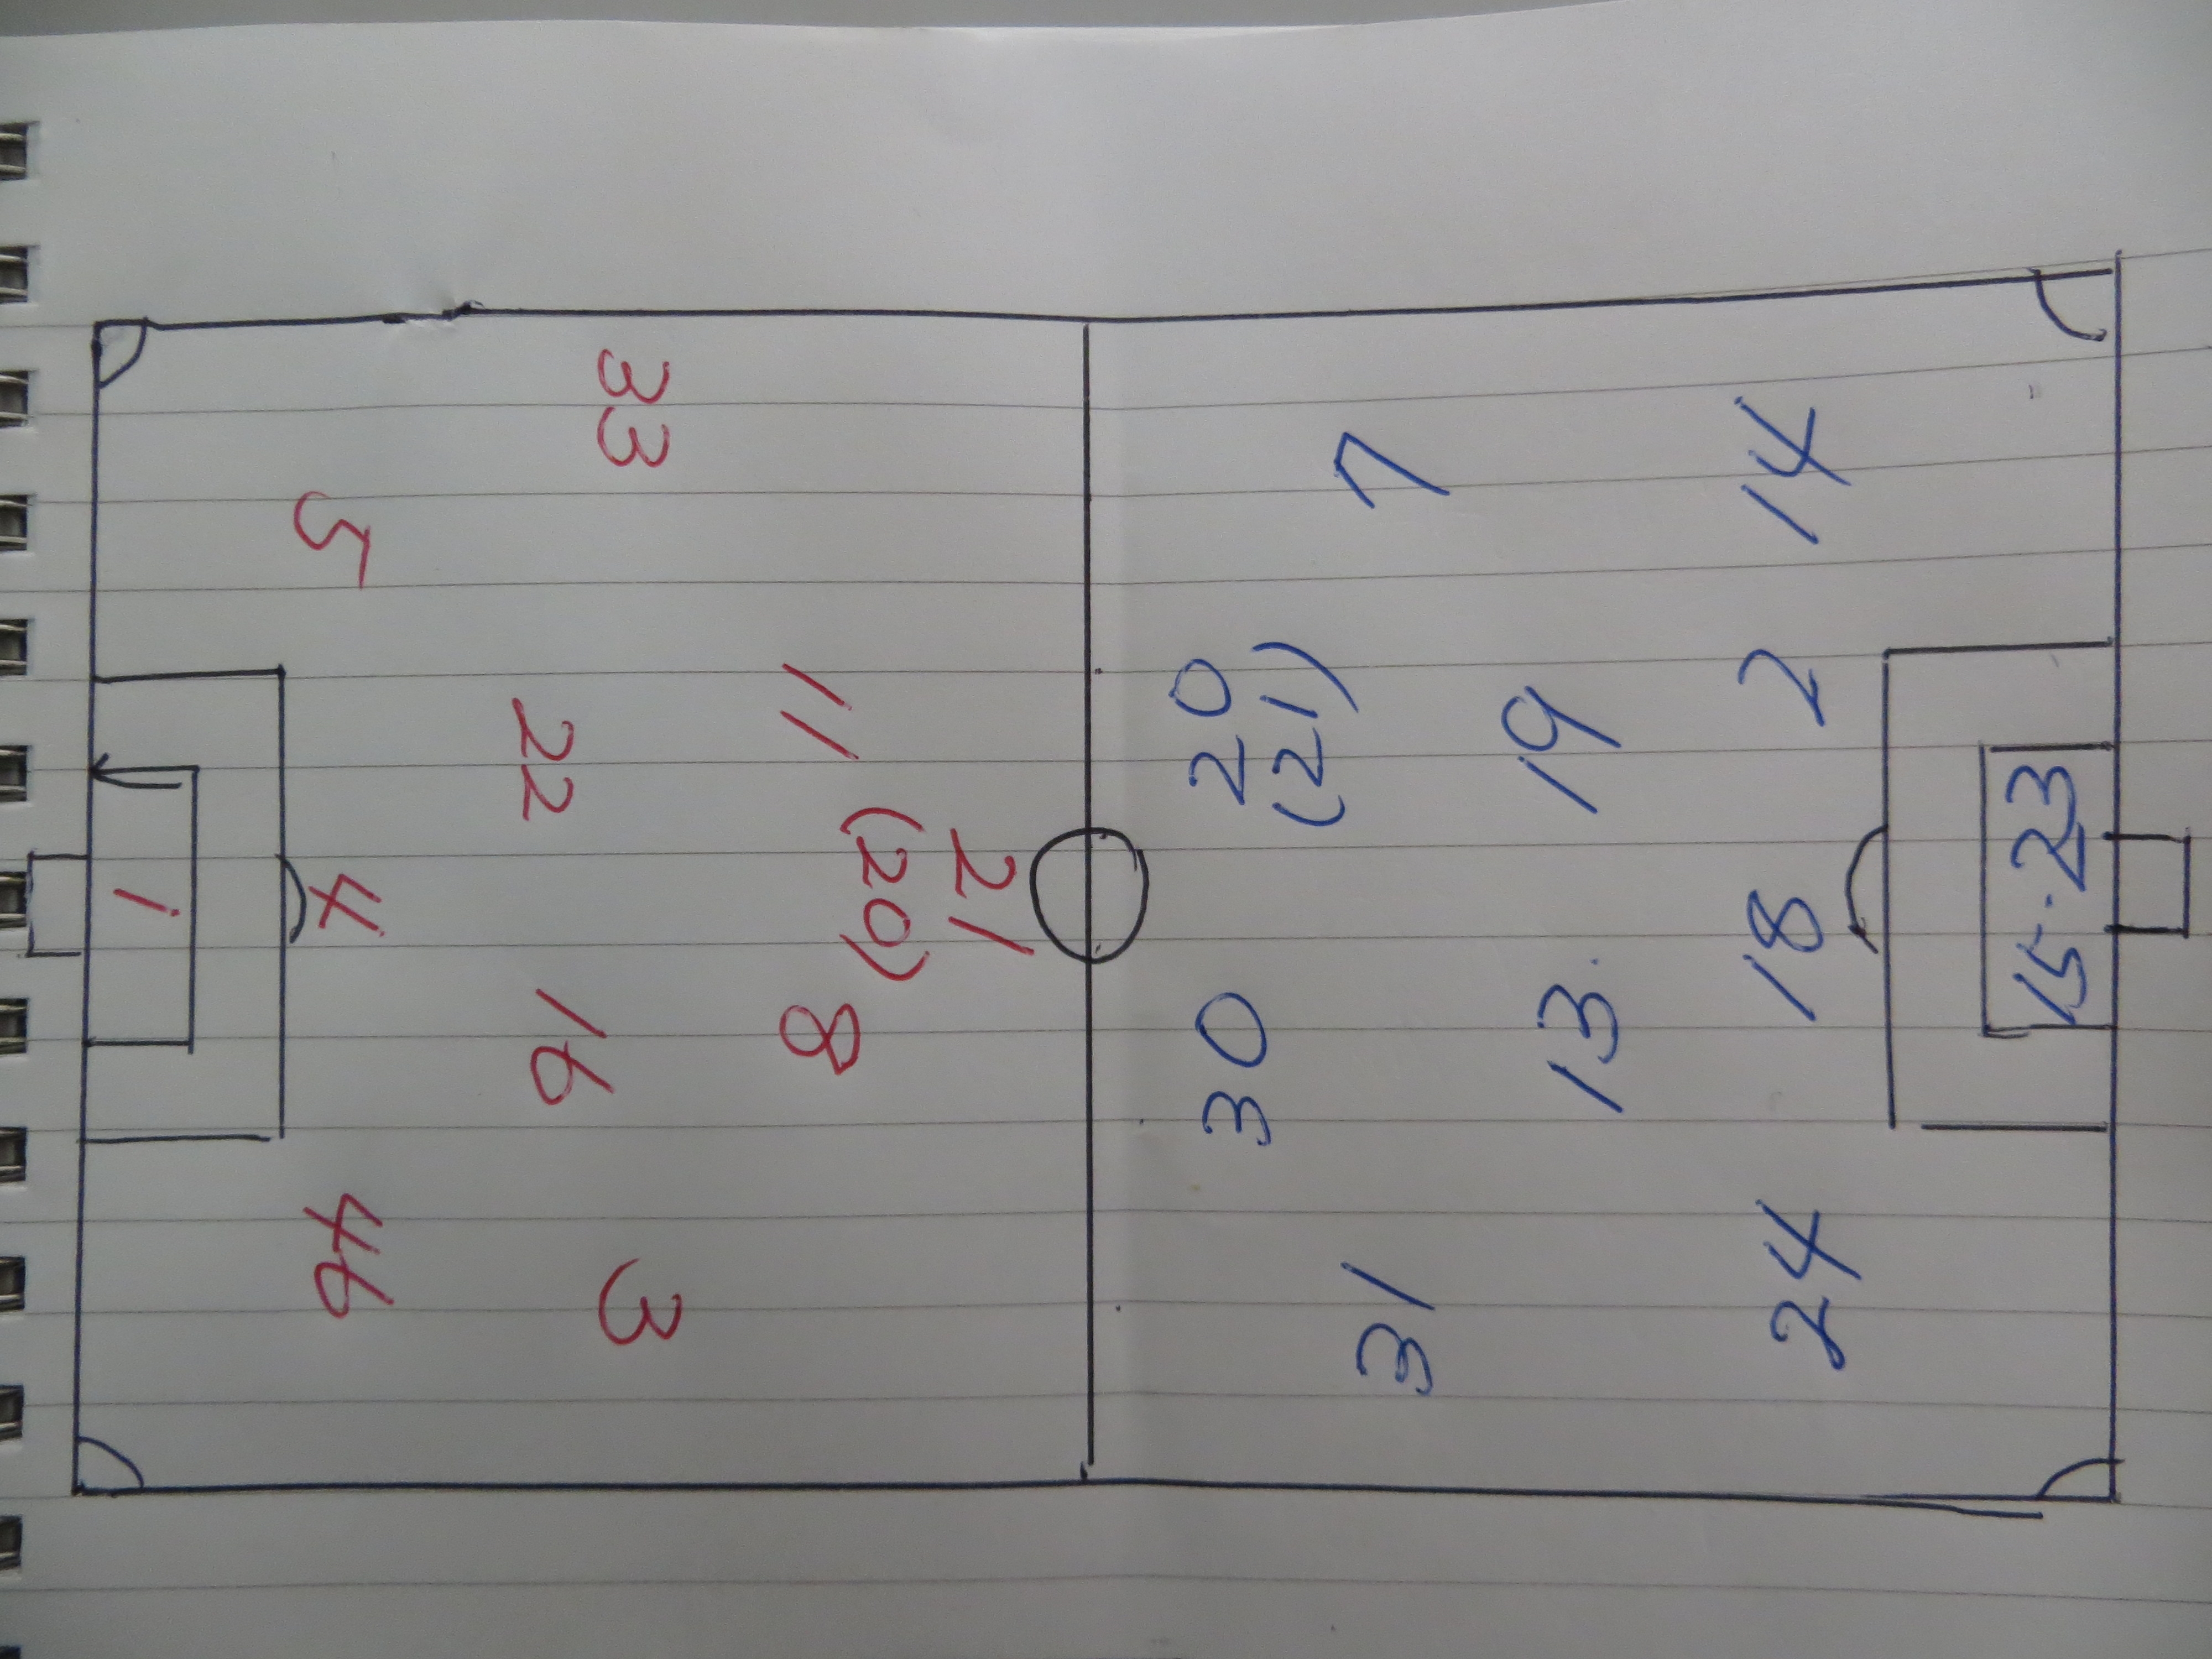 33
5
11
22
21
(20)
1
4
8
16
46
3
14
7
2
20
(21)
19
15.23
18
13.
30
24
31